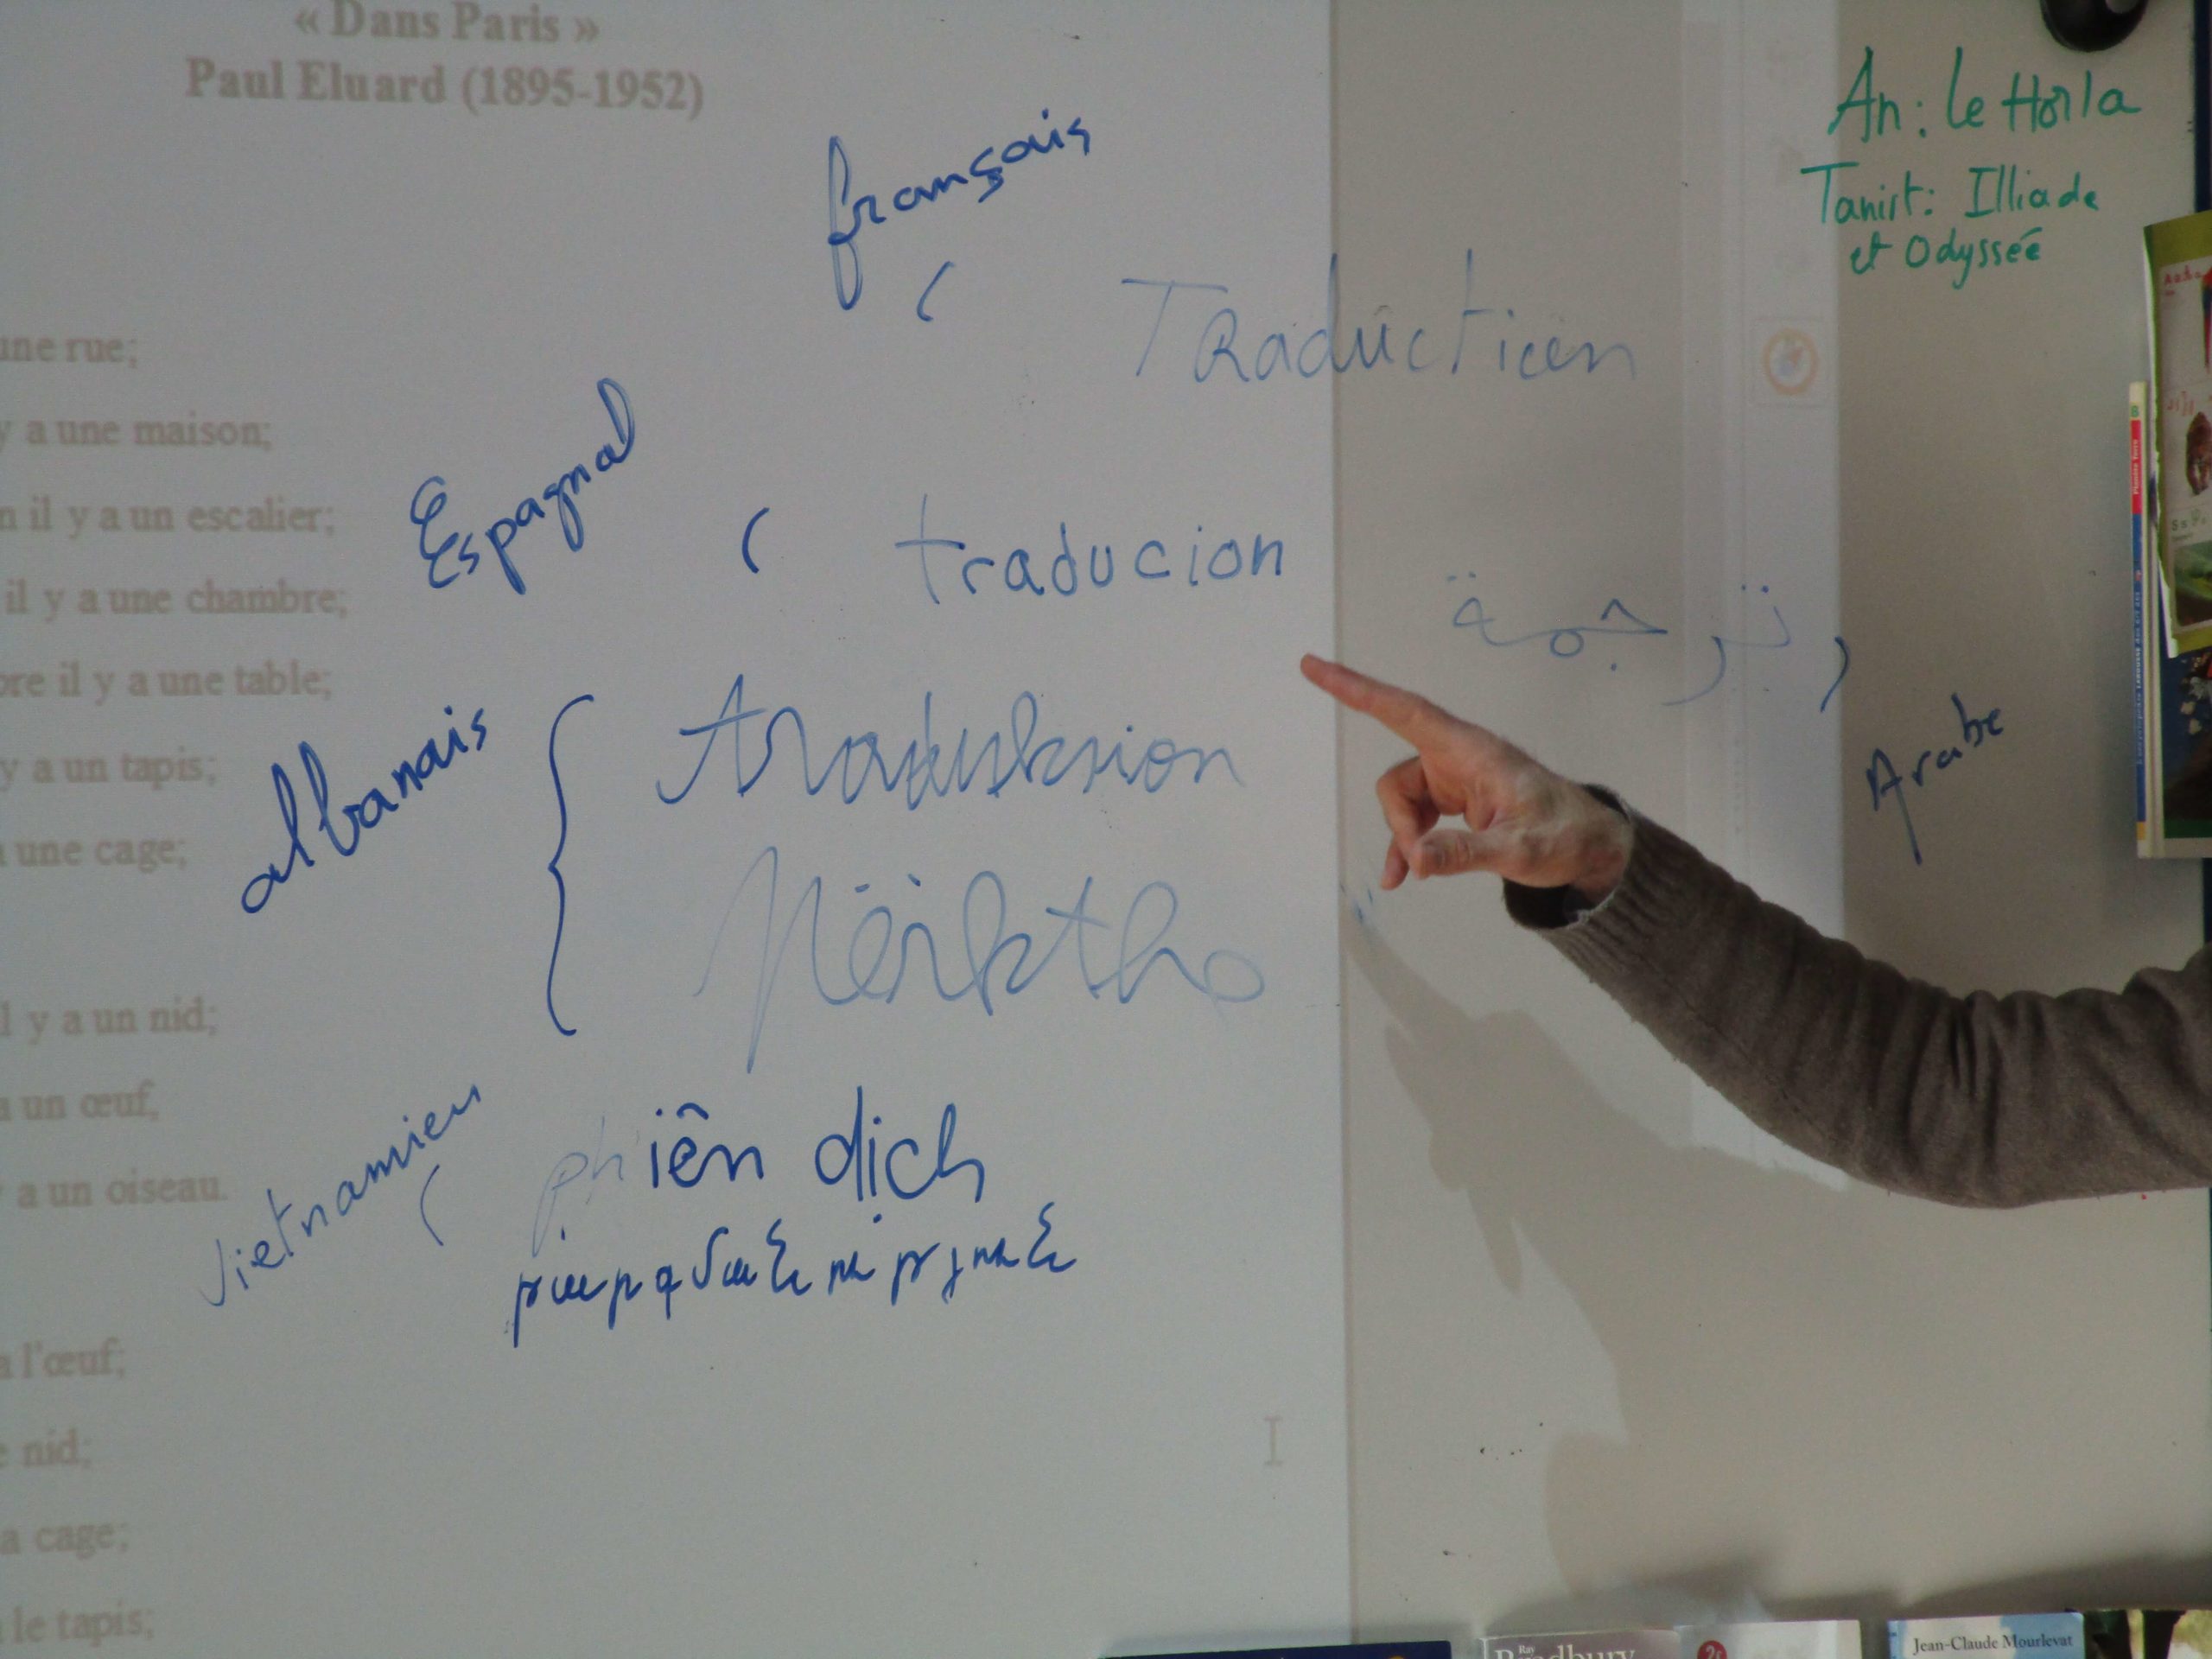 « Dans Paris »
Paul Eluard (1895-1952)
une rue;
y a une maison;
il y a un escalier;
il y a une chambre;
il y a une table;
y a un tapis;
une cage;
y a un nid;
a un œuf,
a un oiseau.
l'œuf;
nid;
a cage;
le tapis;
français
Traduction
Espagnol
traducion
albanais
traduksion
Përktho
Vietnamien
phiên dich
ترجمة
Arabe
An: Le Horla
Tanirt: Illiade
et Odyssée
Bradbury
Jean-Claude Mourlevat